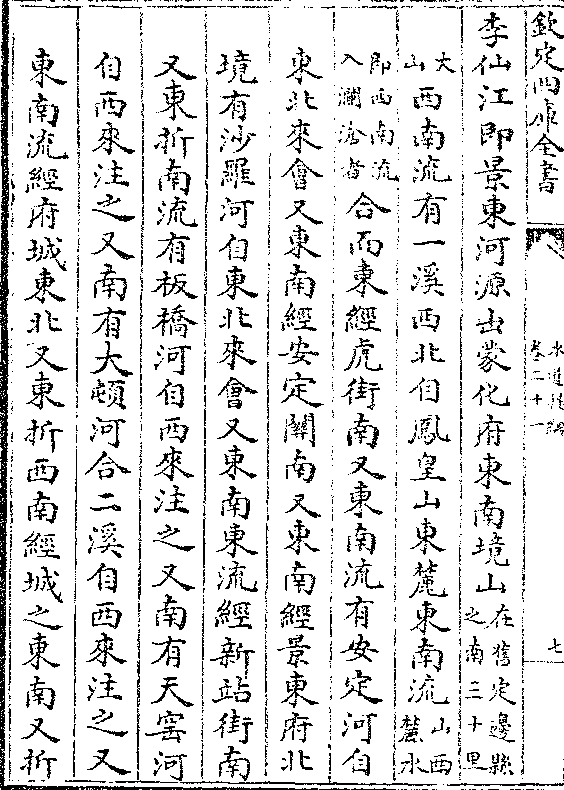 欽定四庫全書
水道提綱
卷二十一
七
李仙江即景東河源出蒙化府東南境山在舊定邊縣之南三十里
大山西南流有一溪西北自鳳皇山東麓東南流山西麓水
即西南流入瀾滄者合而東經虎街南又東南流有安定河自
東北來會又東南經安定關南又東南經景東府北
境有沙羅河自東北來會又東南東流經新站街南
又東折南流有板橋河自西來注之又南有天窑河
自西來注之又南有大頓河合二溪自西來注之又
東南流經府城東北又東折西南經城之東南又折